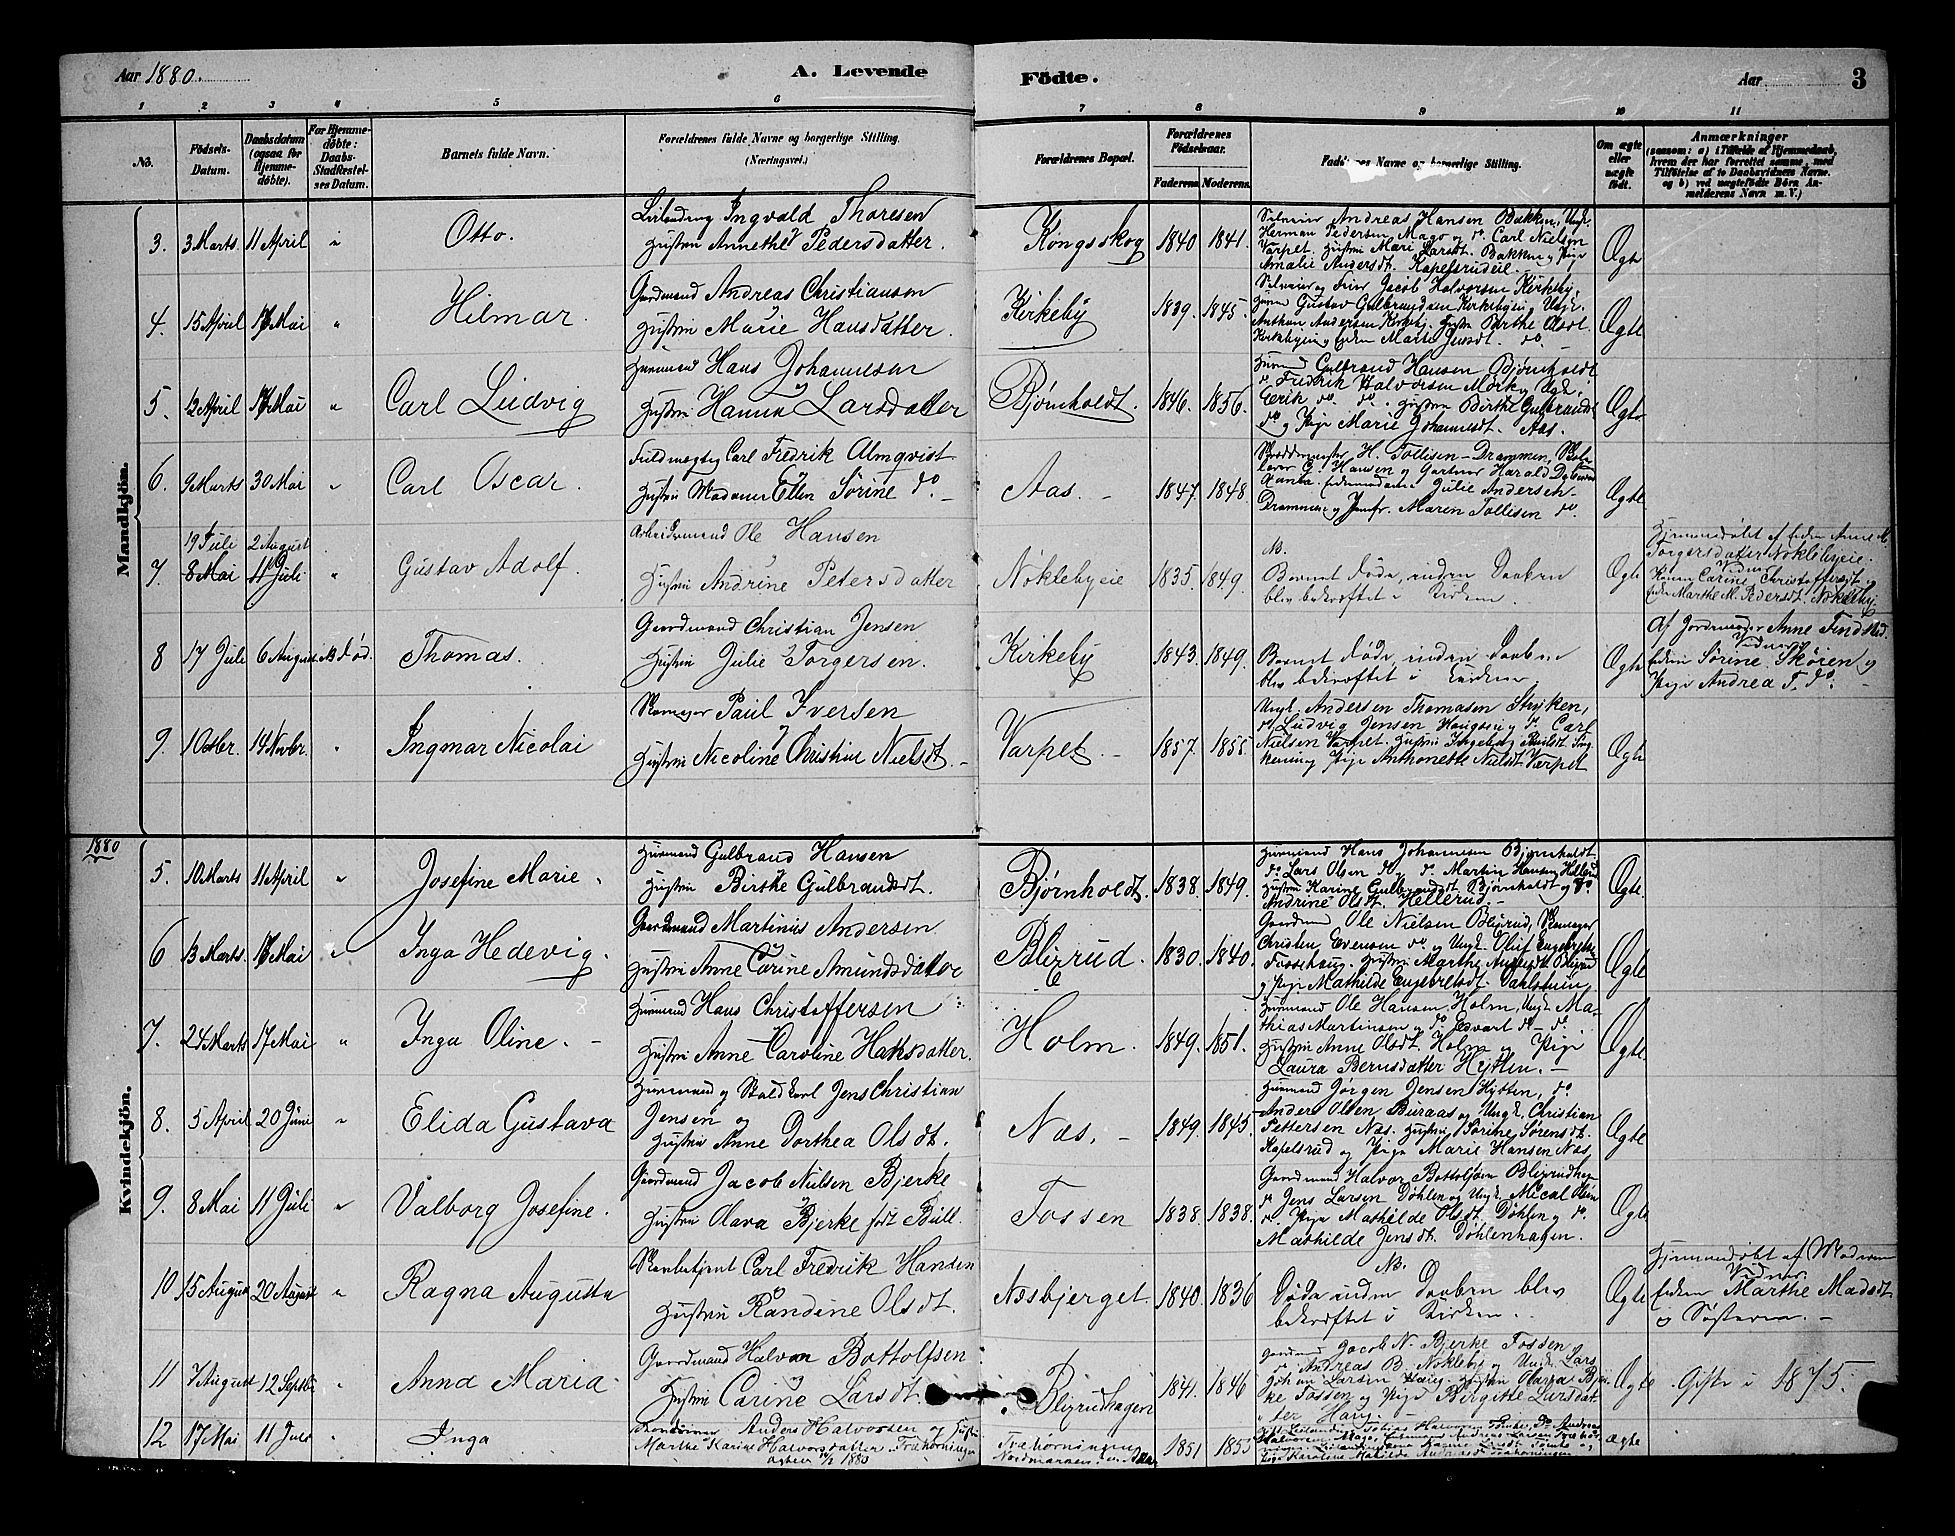 Aar 1880. A. Levende Födte. Aar 3
1 2 3 4 5 6 7 8 9 10 11
No. Födsels-Datum. Daabsdatum (ogsaa for Hjemme-döbte). For Hjemme-döbte: Daabs-Stadfæstel-ses Datum. Barnets fulde Navn. Forældrenes fulde Navne og borgerlige Stilling. (Næringsvei.) Forældrenes Bopæl. Forældrenes Födselsaar. Faderens. Moderens. Navne og borgerlige Stilling. Om ægte eller uægte födt. Anmærkninger (saasom: a) i Tilfælde af Hjemmedaab, hvem der har forrettet samme, med Tilföielse af to Daabsvidners Navne. og b) ved uægtefödte Börn An-melderens Navn m. V.)
Mandkjön.
3. 3 Marts 11 April " Otto. Ingvald Thoresen
Hustru Annethe Pedersdatter. Kongsskog 1840 1841. Ægte
Selveier Andreas Hansen Bakken, Ungk.
Herman Pedersen Mago og do. Carl Nielsen
Varpet, Hustru Mari Larsdt. Bakken og Pige
Amalie Andersdt. Kapelsrudeie.
4. 15 April 16 Mai " Hilmar. Gaardmand Andreas Christiansen
Hustru Marie Hansdatter. Kirkeby 1839. 1845. Ægte
Selveier og Jacob Halvorsen Kirkeby,
Gustav Gulbrandsen Kirkebyeie, Ungk.
Anthon Andersen Kirkeby. Hustru Berthe Olsdt.
Kirkebyeie og Enken Marte Jensdt. do.
5. 12 April 16 Mai " Carl Ludvig Huusmand Hans Johannesen
Hustru Hanna Larsdatter Bjørnholdt. 1846. 1856. Ægte
Huusmand Gulbrand Hansen Bjørnholdt
do Fredrik Halvorsen Mørk og Ungk.
Erik do. do. Hustru Birthe Gulbrands
do og Pige Marie Johannesdt. Aas.
6. 9 Marts 30 Mai " Carl Oscar. Fuldmægtig Carl Fredrik Almqvist
Hustru Madame Ellen Sørine do. Aas. 1847. 1848. Ægte
H. Tollisen - Drammen,
G. Hansen og Gartner Harald
Julie Andersen
Drammen og Jomfr. Maren Tollisen do.
19 Juli 2 August
7. 8 Mai 11 Juli " Gustav Adolf. Arbeidsmand Ole Hansen
Hustru Andrine Petersdatter Nøklebyeie 1835. 1849. Ægte
NB.
Barnet døde, inden Daaben
blev bekræftet i Kirken.
Hjemmedøbt af Enken Anne M.
Torgersdatter Nøklebyeie.
Vidner
Konen Carine Christoffersdt. og
Enken Marthe M. Pedersdt. Nøkleby
8 17 Juli 6 August NB død. Thomas. Gaardmand Christian Jensen
Hustru Julie Torgersen. Kirkeby 1843. 1849. Ægte
Barnet døde, inden Daaben
blev bekræftet i Kirken.
Af Jordemoder Anne Findstad.
Vidner
Enken Sørine Skøien og
Pige Andrea T. do.
9. 1 Octbr. 14 Novbr. " Ingmar Nicolai Skomager Paul Iversen
Hustru Nicoline Christine Nielsdt. Varpet. 1857. 1855. Ægte
Ungk. Andersen Thomasen Stryken,
do Ludvig Jensen Haugseie og do. Carl
Nielsen Varpet, Hustru Ingeborg
Pige Anthonette Nielsdt. Varpet
1880
Kvindekjön.
5. 10 Marts 11 April " Josefine Marie. Huusmand Gulbrand Hansen
Hustru Birthe Gulbrandsdt. Bjørnholdt. 1838. 1849. Ægte.
Huusmand Hans Johannesen Bjørnholdt
do Lars Olsen do og do. Martin Hansen Hellerud
Hustru Karine Gulbrandsdt. Bjørnholdt og do.
Andrine Olsdt. Hellerud.
6 13 Marts 16 Mai " Inga Hedevig. Gaardmand Martinus Andersen
Hustru Anne Carine Amundsdatter Blyrud. 1830. 1840. Ægte
Gaardmand Ole Nielsen Blyrud, Skomager
Christen Evensen do og Ungk. Oluf Engebretsen
Fossehaug. Hustru Marthe Blyrud
og Pige Mathilde Engebretsdt. Dahlstuen.
7. 24 Marts 17 Mai " Inga Oline. Huusmand Hans Christoffersen
Hustru Anne Caroline Hansdatter. Holm. 1849. 1851. Ægte
Huusmand Ole Hansen Holm, Ungk. Ma-
thias Martinsen og do Edvart do - do.
Hustru Anne Olsdt. Holm og Pige
Laura Berntsdatter Hytten.
8. 5 April 20 Juni " Elida Gustava Huusmand og Staldkarl Jens Christian
Jensen og
Hustru Anne Dorthea Olsdt. Næs. 1849. 1845. Ægte
Huusmand Jørgen Jensen Hytten, do.
Anders Olsen Buraas og Ungk. Christian
Pettersen Næs. Hustru Sørine Sørensdt.
Kapelsrud og Pige Marie Hansen Næs.
9. 8 Mai 11 Juli " Valborg Josefine. Gaardmand Jacob Nielsen Bjerke
Hustru Olava Bjerke født Bull. Fossen 1838. 1838. Ægte
Gaardmand Halvor Bottolfsen Blyrudhagen
do Jens Larsen Døhlen og Ungk. Micael Olsen
do. Pige Mathilde Olsdt. Døhlen og do.
Mathilde Jensdt. Døhlenhagen.
10. 15 August 20 August " Ragna Augusta Carl Fredrik Hansen
Hustru Randine Olsdt. Næsbjerget. 1840. 1836 Ægte
NB.
Døde inden Daaben blev
bekræftet i Kirken.
Hjemmedøbt af Moderen
Vidner
Enken Marthe Madsdt.
og Søsteren.
11 7 August 12 Septbr " Anna Maria Gaardmand Halvor Bottolfsen
Hustru Carine Larsdt. Blyrudhagen 1841. 1846 Ægte Gifte i 1875.
Gaardmand Jacob N. Bjerke Fossen,
do Andreas B. Nøkleby og Ungk. Lars
Johan Larsen Haug. Hustru Olava Bjer-
ke Fossen og Pige Birgitte Larsdat-
ter Haug.
12 17 Mai 11 Juli " Inga Anders Halvorsen og Hustru
Marthe Karine Halvorsdatter Trehørningen
1880 Trehørningen
Nordmarken 1851 1855 ægte